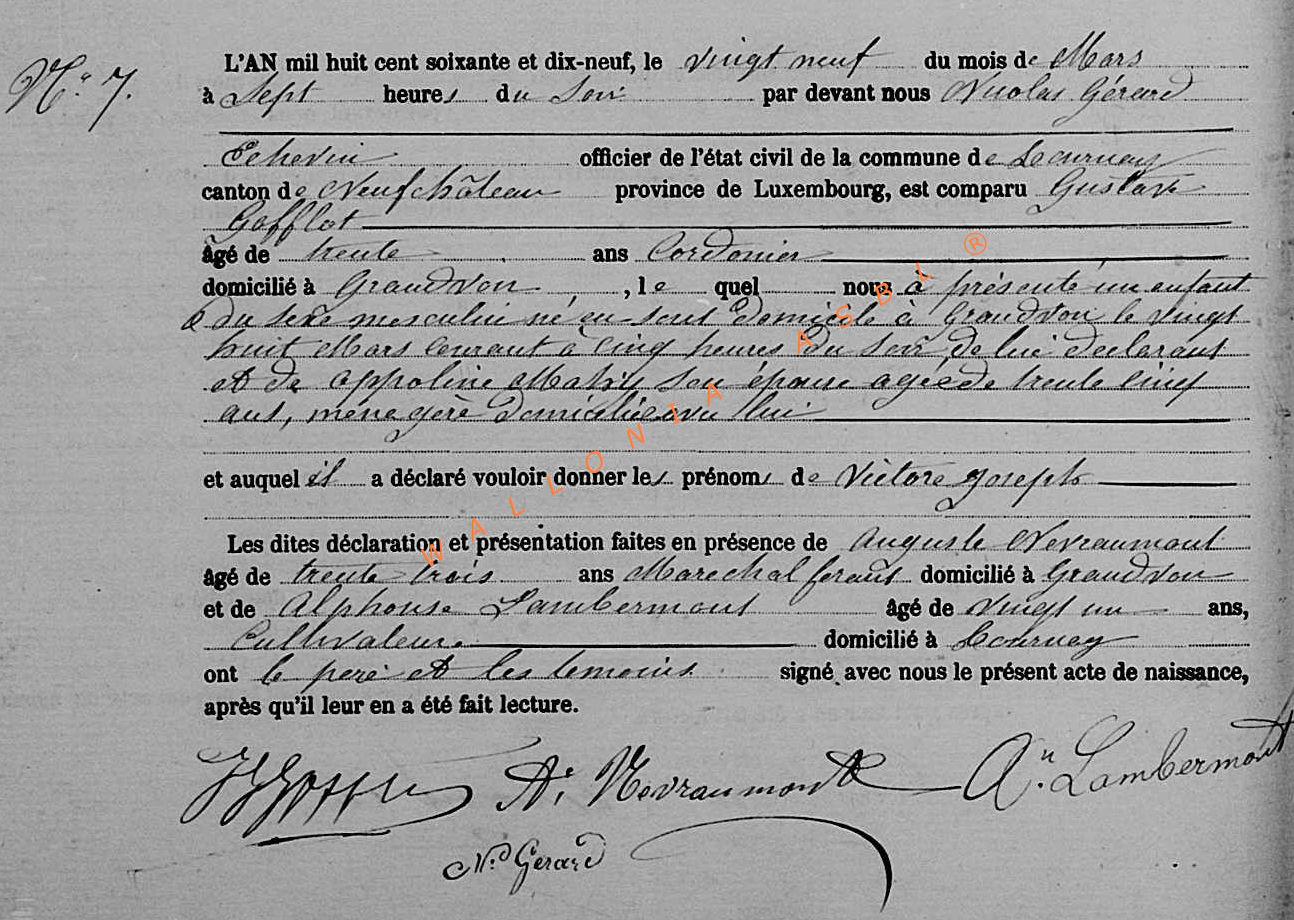 N° 7.
L'AN mil huit cent soixante et dix-neuf, le vingt neuf du mois de Mars
à Sept heures du Soir par devant nous Nicolas Gérard
Echevin officier de l'état civil de la commune de Tournay
canton de Neufchâteau province de Luxembourg, est comparu Gustave
Gofflot
âgé de trente ans Cordonier
domicilié à Grandvoir, le quel nous à présenté un enfant
du sexe masculin né en son domicile à Grandvoir le vingt
huit Mars courant à cinq heures du soir, de lui déclarant
et de Appoline son épouse agée de trente cinq
ans, menagère domiciliée avec lui
et auquel il a déclaré vouloir donner les prénoms de Victore Joseph
Les dites déclaration et présentation faites en présence de Auguste Nevraumont
âgé de trente trois ans Marechal ferant domicilié à Grandvoir
et de Alphonse Lambermont âgé de vingt un ans,
Cultivateur. domicilié à Tournay
ont le père et les temoins signé avec nous le présent acte de naissance,
après qu'il leur en a été fait lecture.
A. Nevraumont A. Lambermont
N. Gerard
WALLONIA ASBL ®